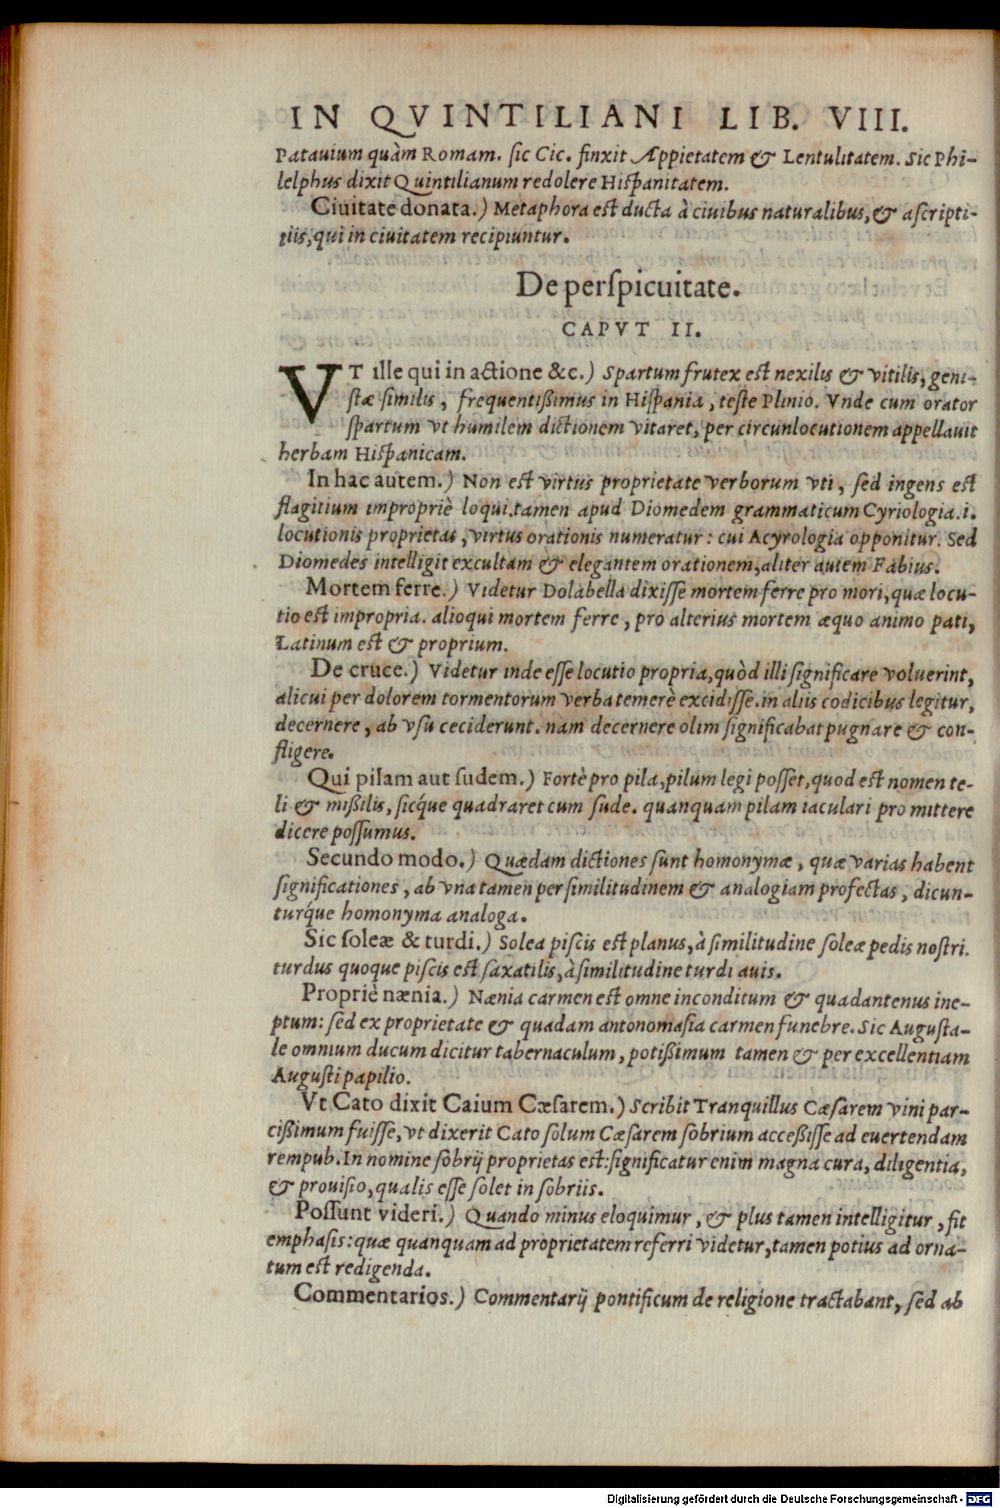 IN QVINTILIANI LIB. VIII.
Patauium quàm Romam. ſic Cic. finxit Appietatem & Lentulitatem. Sic Phi-
lelphus dixit Quintilianum redolere Hiſpanitatem.
Ciuitate donata.) Metaphora eſt ducta à ciuibus naturalibus, & aſcripti-
tiis, qui in ciuitatem recipiuntur.
De perſpicuitate.
CAPVT II.
VT ille qui in actione &c.) Spartum frutex eſt nexilis & vitilis, geni-
ſtæ ſimilis, frequentißimus in Hiſpania, teſte Plinio. Vnde cum orator
ſpartum vt humilem dictionem vitaret, per circunlocutionem appellauit
herbam Hiſpanicam.
In hac autem.) Non eſt virtus proprietate verborum vti, ſed ingens eſt
flagitium impropriè loqui. tamen apud Diomedem grammaticum Cyriologia .i.
locutionis proprietas, virtus orationis numeratur: cui Acyrologia opponitur. Sed
Diomedes intelligit excultam & elegantem orationem, aliter autem Fabius.
Mortem ferre.) Videtur Dolabella dixiſſe mortem ferre pro mori, quæ locu-
tio eſt impropria. alioqui mortem ferre, pro alterius mortem æquo animo pati,
Latinum eſt & proprium.
De cruce.) Videtur inde eſſe locutio propria, quòd illi ſignificare voluerint,
alicui per dolorem tormentorum verba temerè excidiſſe. in aliis codicibus legitur,
decernere, ab vſu ceciderunt. nam decernere olim ſignificabat pugnare & con-
fligere.
Qui pilam aut ſudem.) Fortè pro pila, pilum legi poſſet, quod eſt nomen te-
li & mißilis, ſicq́ue quadraret cum ſude. quanquam pilam iaculari pro mittere
dicere poſſumus.
Secundo modo.) Quædam dictiones ſunt homonymæ, quæ varias habent
ſignificationes, ab vna tamen per ſimilitudinem & analogiam profectas, dicun-
turq́ue homonyma analoga.
Sic ſoleæ & turdi.) Solea piſcis eſt planus, à ſimilitudine ſoleæ pedis noſtri.
turdus quoque piſcis eſt ſaxatilis, à ſimilitudine turdi auis.
Propriè nænia.) Nænia carmen eſt omne inconditum & quadantenus ine-
ptum: ſed ex proprietate & quadam antonomaſia carmen funebre. Sic Auguſta-
le omnium ducum dicitur tabernaculum, potißimum tamen & per excellentiam
Auguſti papilio.
Vt Cato dixit Caium Cæſarem.) Scribit Tranquillus Cæſarem vini par-
cißimum fuiſſe, vt dixerit Cato ſolum Cæſarem ſobrium acceßiſſe ad euertendam
rempub. In nomine ſobrij proprietas eſt: ſignificatur enim magna cura, diligentia,
& prouiſio, qualis eſſe ſolet in ſobriis.
Poſſunt videri.) Quando minus eloquimur, & plus tamen intelligitur, fit
emphaſis: quæ quanquam ad proprietatem referri videtur, tamen potius ad orna-
tum eſt redigenda.
Commentarios.) Commentarij pontificum de religione tractabant, ſed ab
Digitalisierung gefördert durch die Deutsche Forschungsgemeinschaft - DFG